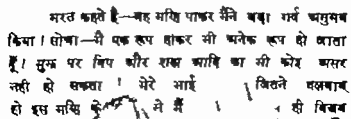 भरत कहते हैं—वह मणि पाकर मैंने बड़ा गर्व अनुभव
किया। सोचा—मैं एक रूप होकर भी अनेक रूप हो जाता
हूँ। मुझ पर विष और शस्त्र आदि का भी कोई असर
नहीं हो सकता। मेरे भाई जितने बलवान्
हो इस मणि के ने मैं ही विजय